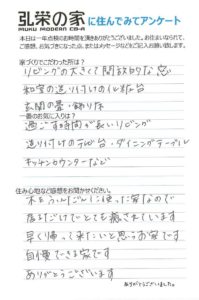 弘栄の家に住んでみてアンケート
MUKU MODERN CO-R
本日は一年点検のお時間を頂きありがとうございました。お住まいなられて、
ご感想、お気づきになった点、またはメッセージなどご記入お願い致します。
家づくりでこだわった所は？
リビングの大きくて開放的な窓
和室の造り付けの仏壇台
玄関の畳・飾り棚
一番のお気に入りは？
過ごす時間が長いリビング
造り付けのテレビ台・ダイニングテーブル
キッチンカウンターなど
住み心地など感想をお聞かせください。
木をふんだんに使った家なので
居るだけでとても癒されています
早く帰って来たいと思うお家です
自慢できる家です
ありがとうございます
ありがとうございました。